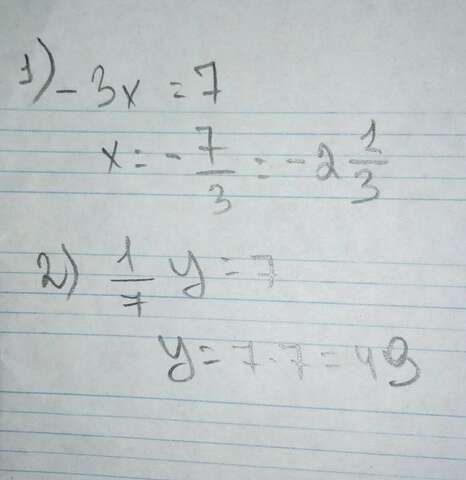 1) - 3x = 7
x = - 7/3 = - 2 1/3
2) 1/7 y = 7
y = 7 · 7 = 49